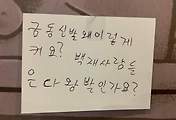 금동신발왜이렇게
커요? 백재사람들
은다왕발인가요?